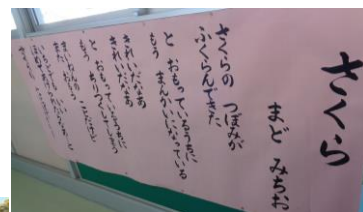 さくら
まど みちお
さくらの つぼみが
ふくらんできた
と おもっているうちに
もう まんかいになっている
きれいだなあ
きれいだなあ
と おもっているうちに
もう ありつくしてしまう
まいねんの ことだけど